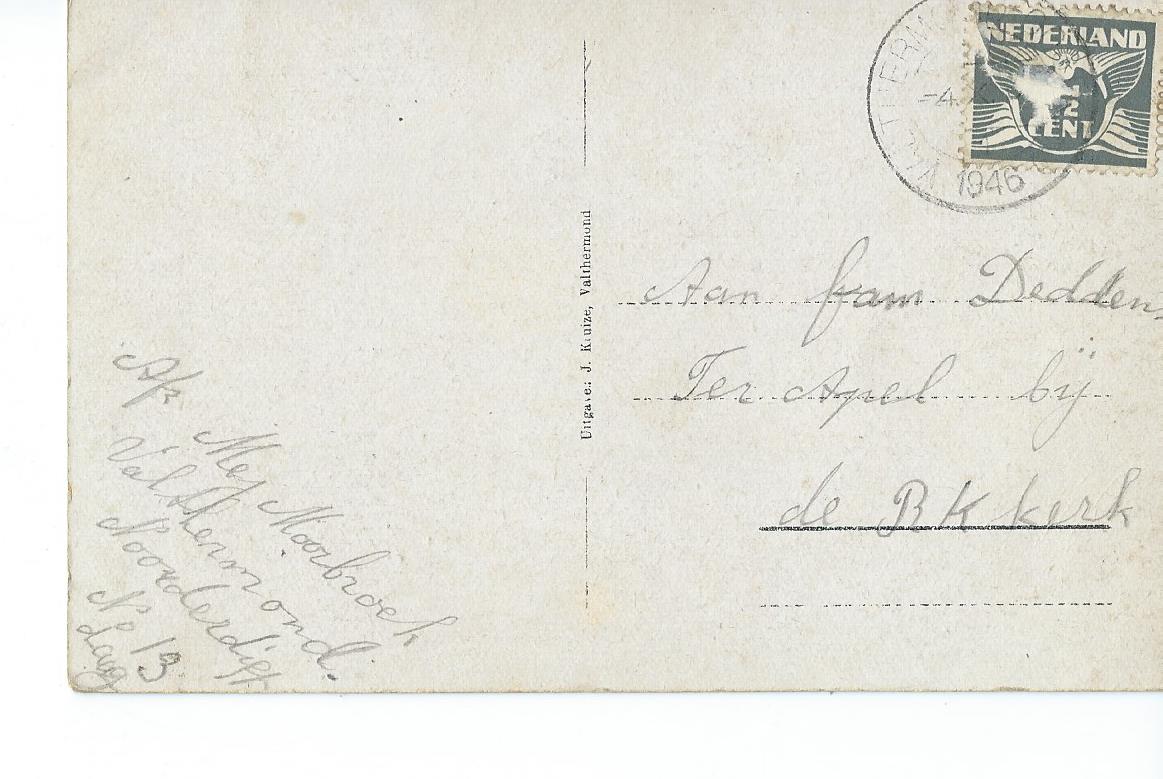 NEDERLAND
2
CENT
-4
1946
Uitgave: J. Kruize, Valthermond
Aan fam Deddens
Ter Apel bij
de RK kerk
Afz
Mej Moorbroek
Valthermond.
Noorderdiep
N 13